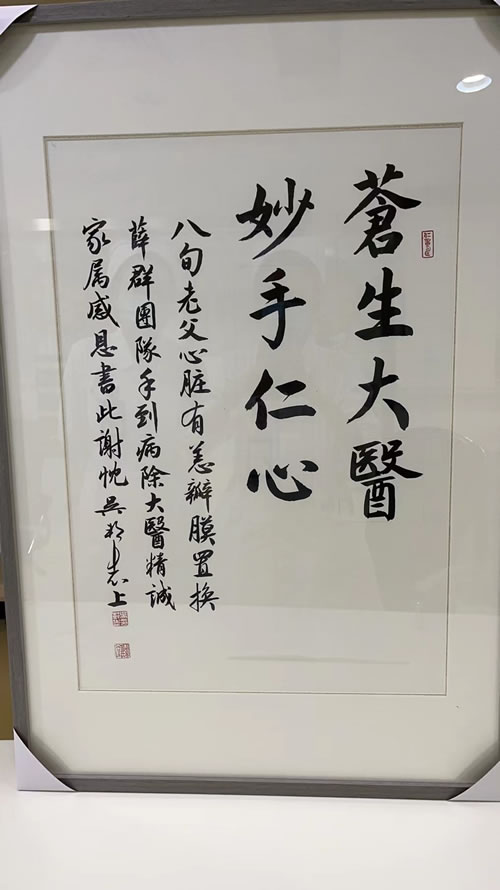 蒼生大醫
妙手仁心
八旬老父心脏有恙瓣膜置换
薛群團隊手到病除大醫精誠
家属感恩書此谢忱吴 志上